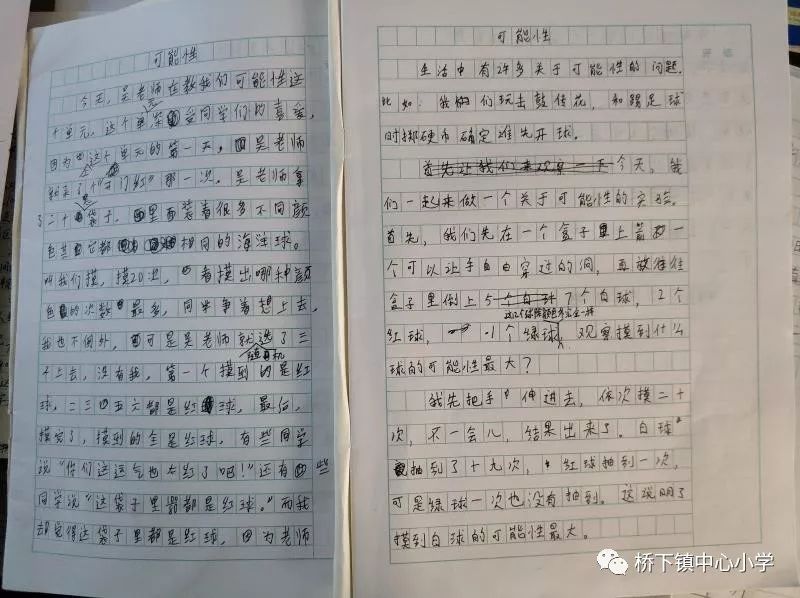 可能性
今天，吴老师在教我们可能性这
个单元，这个单元受同学们的喜爱，
因为这个单元的第一天，吴老师
了"开门红"那一次。吴老师拿
了二十袋子，里面装着很多不同颜
色其它都相同的海洋球。
叫我们摸，摸20次，看摸出哪种颜
色的次数最多，同学争着想上去，
我也不例外，可是吴老师就选了三
随机
个上去，没有我，第一个摸到的是红
球，二三四五六都是红球，最后，
摸完了，摸到的全是红球，有些同学
说"你们这运气也太红了吧！"还有些
同学说"这袋子里都是红球。"而我
却觉得这袋子里都是红球，因为老师
可能性
生活中有许多关于可能性的问题，
比如：我们玩击鼓传花，和踢足球
时掷硬币确定谁先开球。
首先让我们来观察一下今天，我
们一起来做一个关于可能性的实验。
首先，我们先在一个盒子上一
个可以让手自由穿过的洞，再往
盒子里倒上5个白球7个白球，2个
红球，1个绿球，观察摸到什么
球的可能性最大？
我先把手伸进去，依次摸二十
次，不一会儿，结果出来了。白球
抽到了十九次，红球抽到一次，
可是绿球一次也没有抽到。这说明了
摸到白球的可能性最大。
桥下镇中心小学